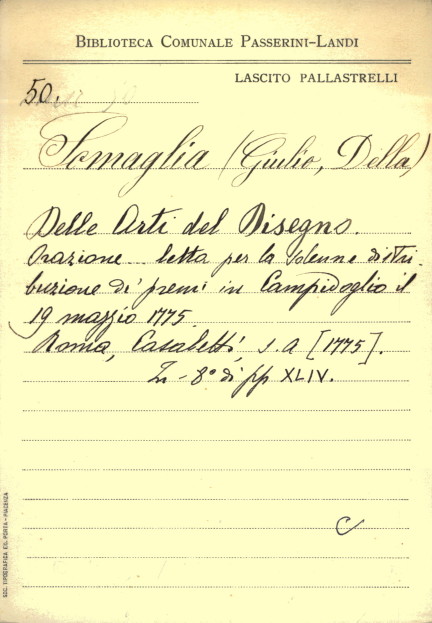 BIBLIOTECA COMUNALE PASSERINI-LANDI
LASCITO PALLASTRELLI
50.
Somaglia (Giulio, Della)
Delle Arti del Disegno.
Orazione... letta per la solenne distri-
buzione di' premi in Campidoglio il
19 mazzio 1775.
Roma, Casaletti, s. a [1775].
In-8° di pp XLIV.
C
SOC. TIPOGRAFICA ED. PORTA-PIACENZA